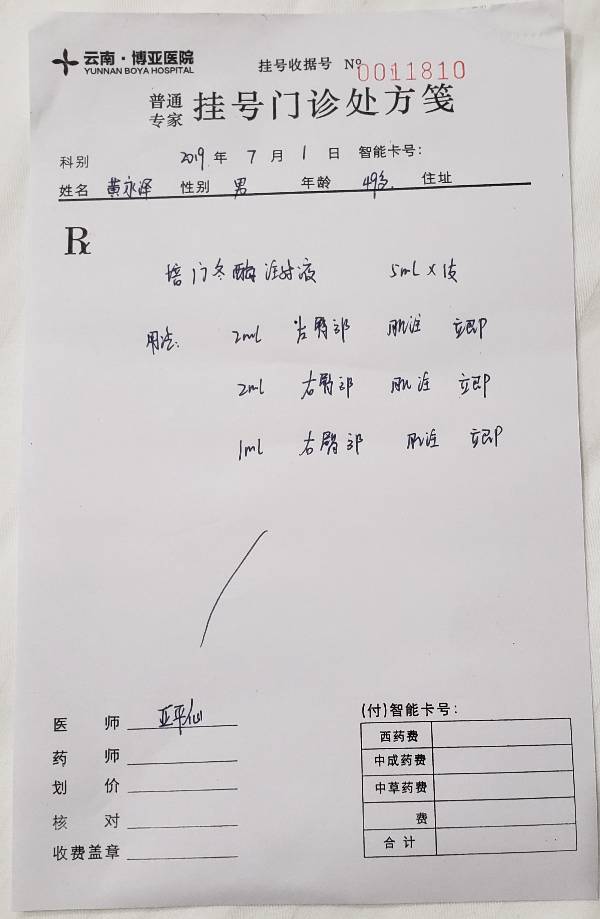 云南·博亚医院
YUNNAN BOYA HOSPITAL
挂号收据号 № 0011810
普通
专家
挂号门诊处方笺
科别 2019 年 7 月 1 日 智能卡号:
姓名 黄永泽 性别 男 年龄 49岁 住址
Rx
培门冬酶注射液 5ml×1支
用法: 2ml 左臀部 肌注 立即
2ml 右臀部 肌注 立即
1ml 右臀部 肌注 立即
医 师
药 师
划 价
核 对
收费盖章
(付)智能卡号:
西药费
中成药费
中草药费
费
合 计